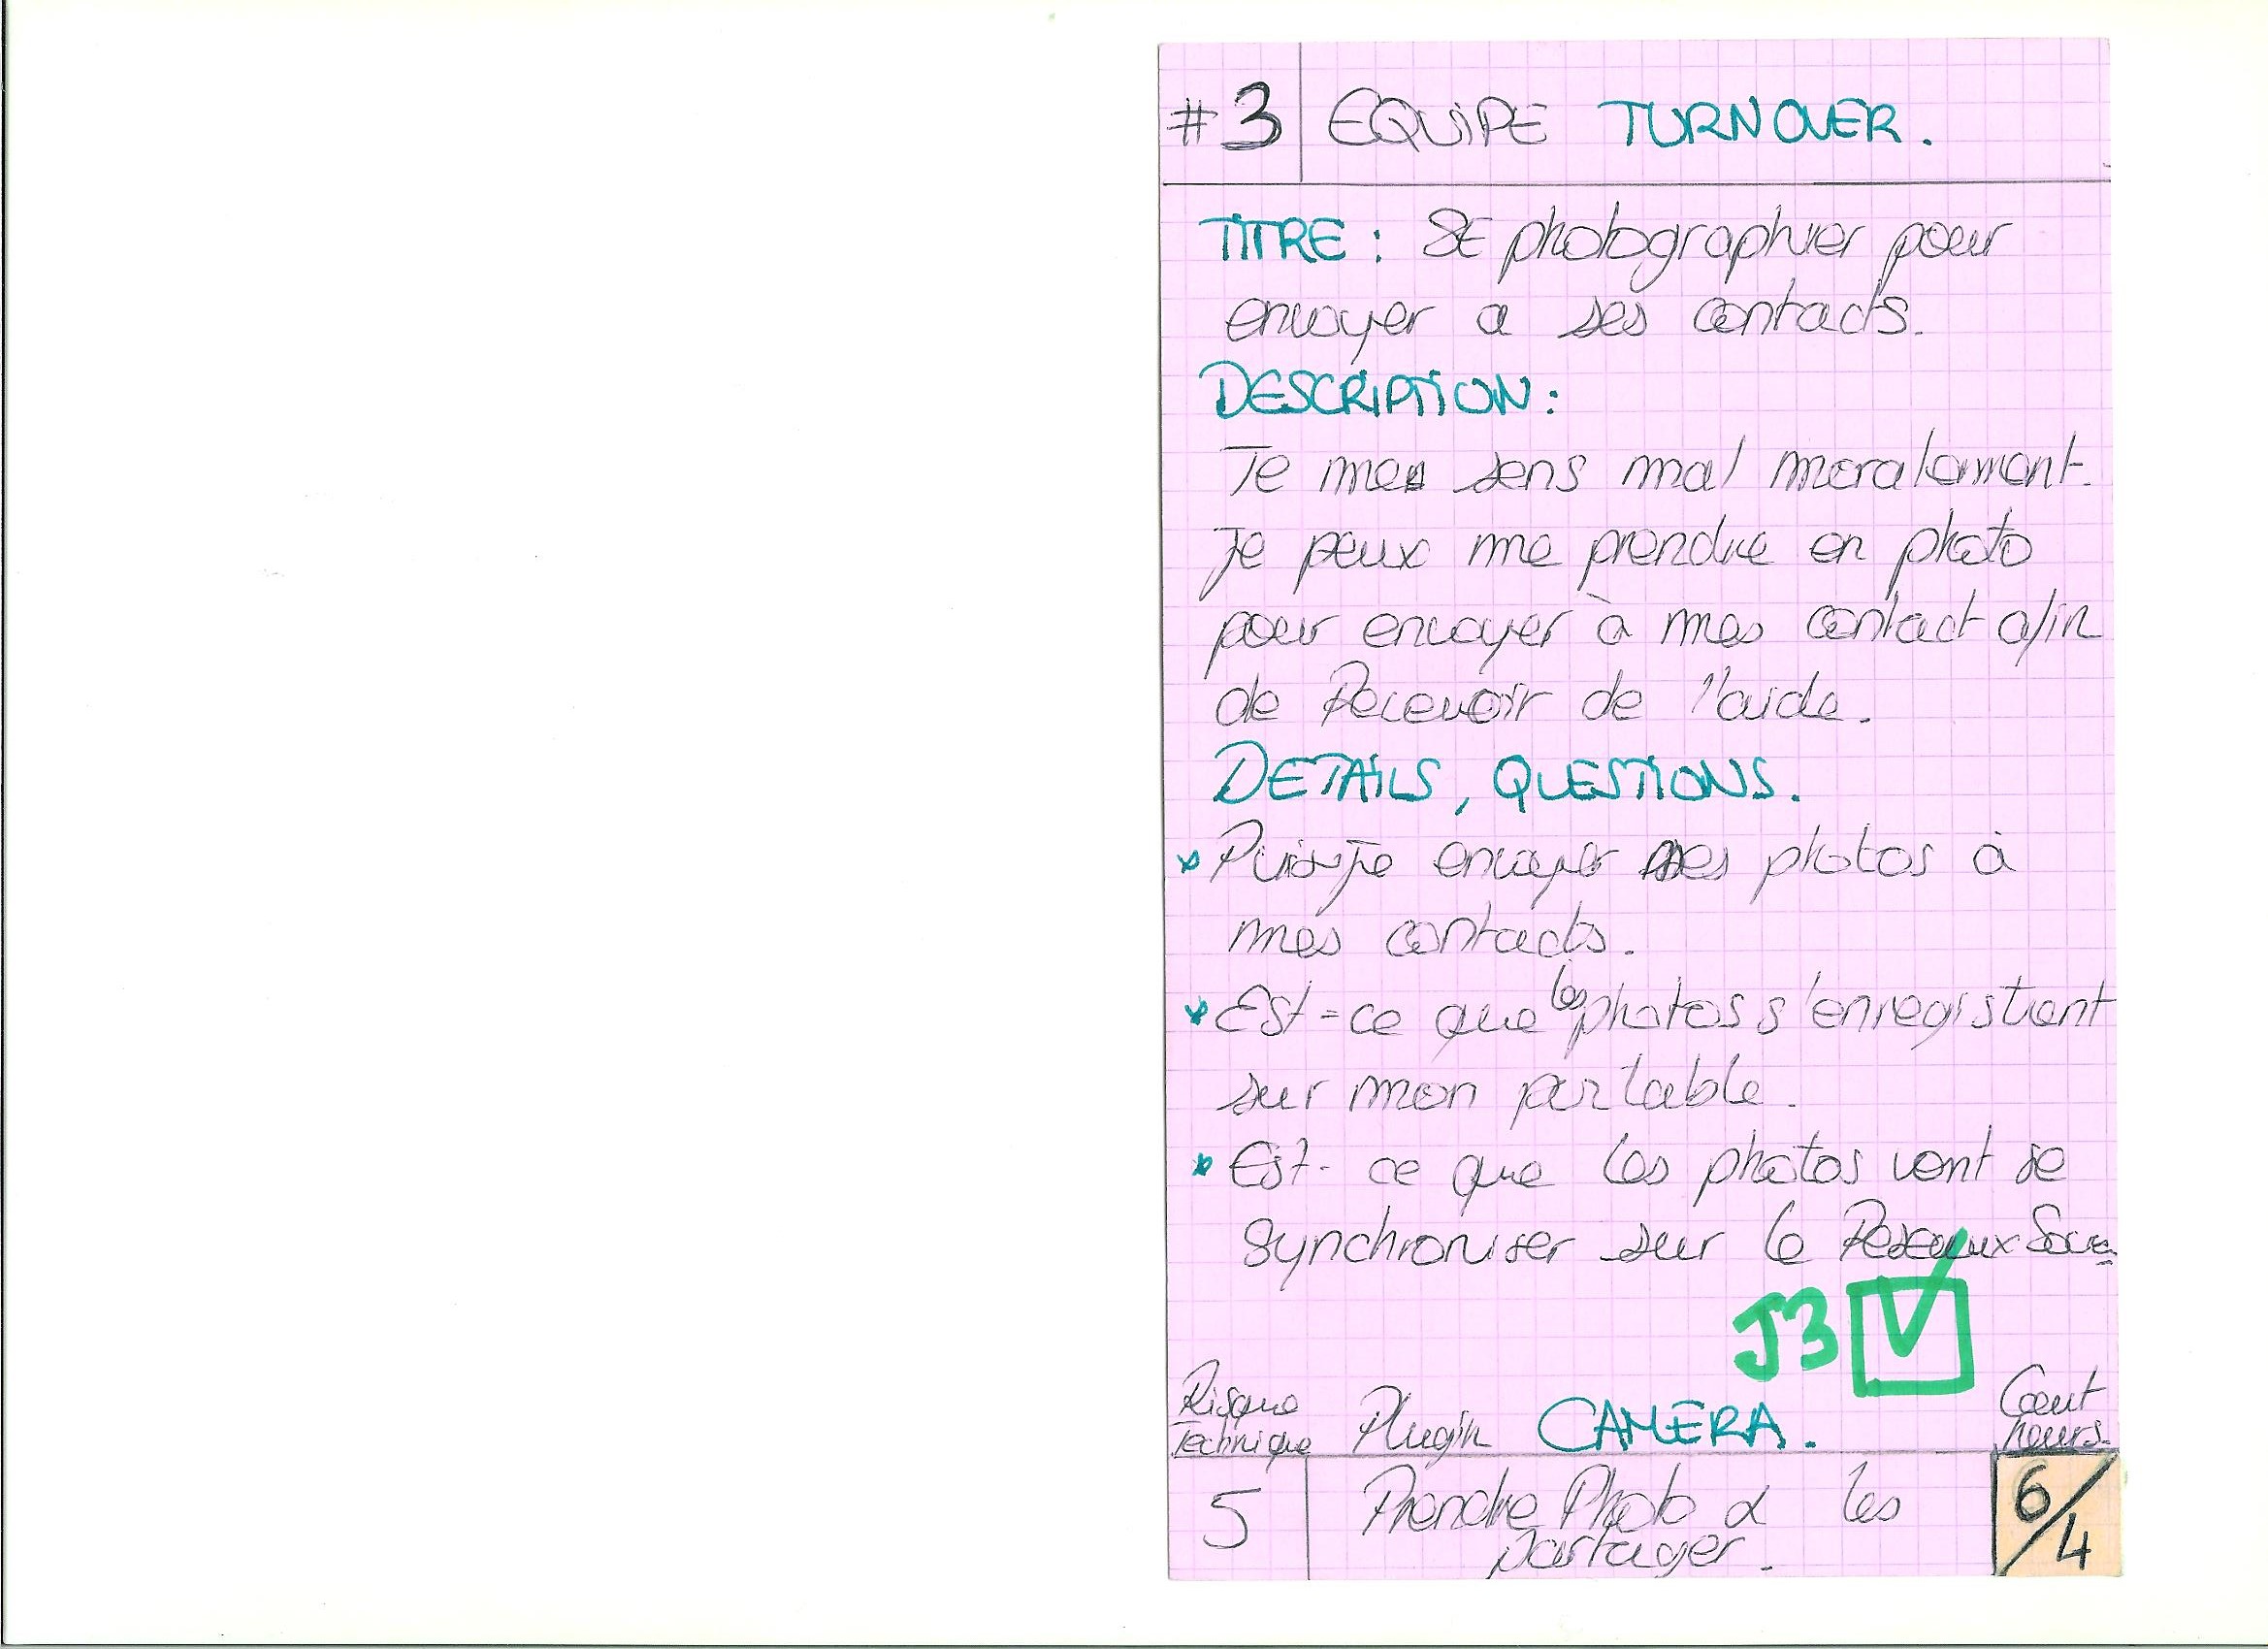 #3 EQUIPE TURNOVER.
TITRE : SE photographier pour
envoyer a ses contacts.
DESCRIPTION :
Je me sens mal moralement.
Je peux me prendre en photo
pour envoyer à mes contact afin
de Recevoir de l'aide.
DETAILS, QUESTIONS.
* Puis-je envoyer mes photos à
mes contacts.
* Est-ce que les photos s'enregistrent
sur mon portable.
* Est-ce que les photos vont se
synchroniser sur le Reseaux
J3
Risque
Technique
Plugin CAMERA.
Coeut
heurs.
5
Prendre Photo & les
partager.
6/4